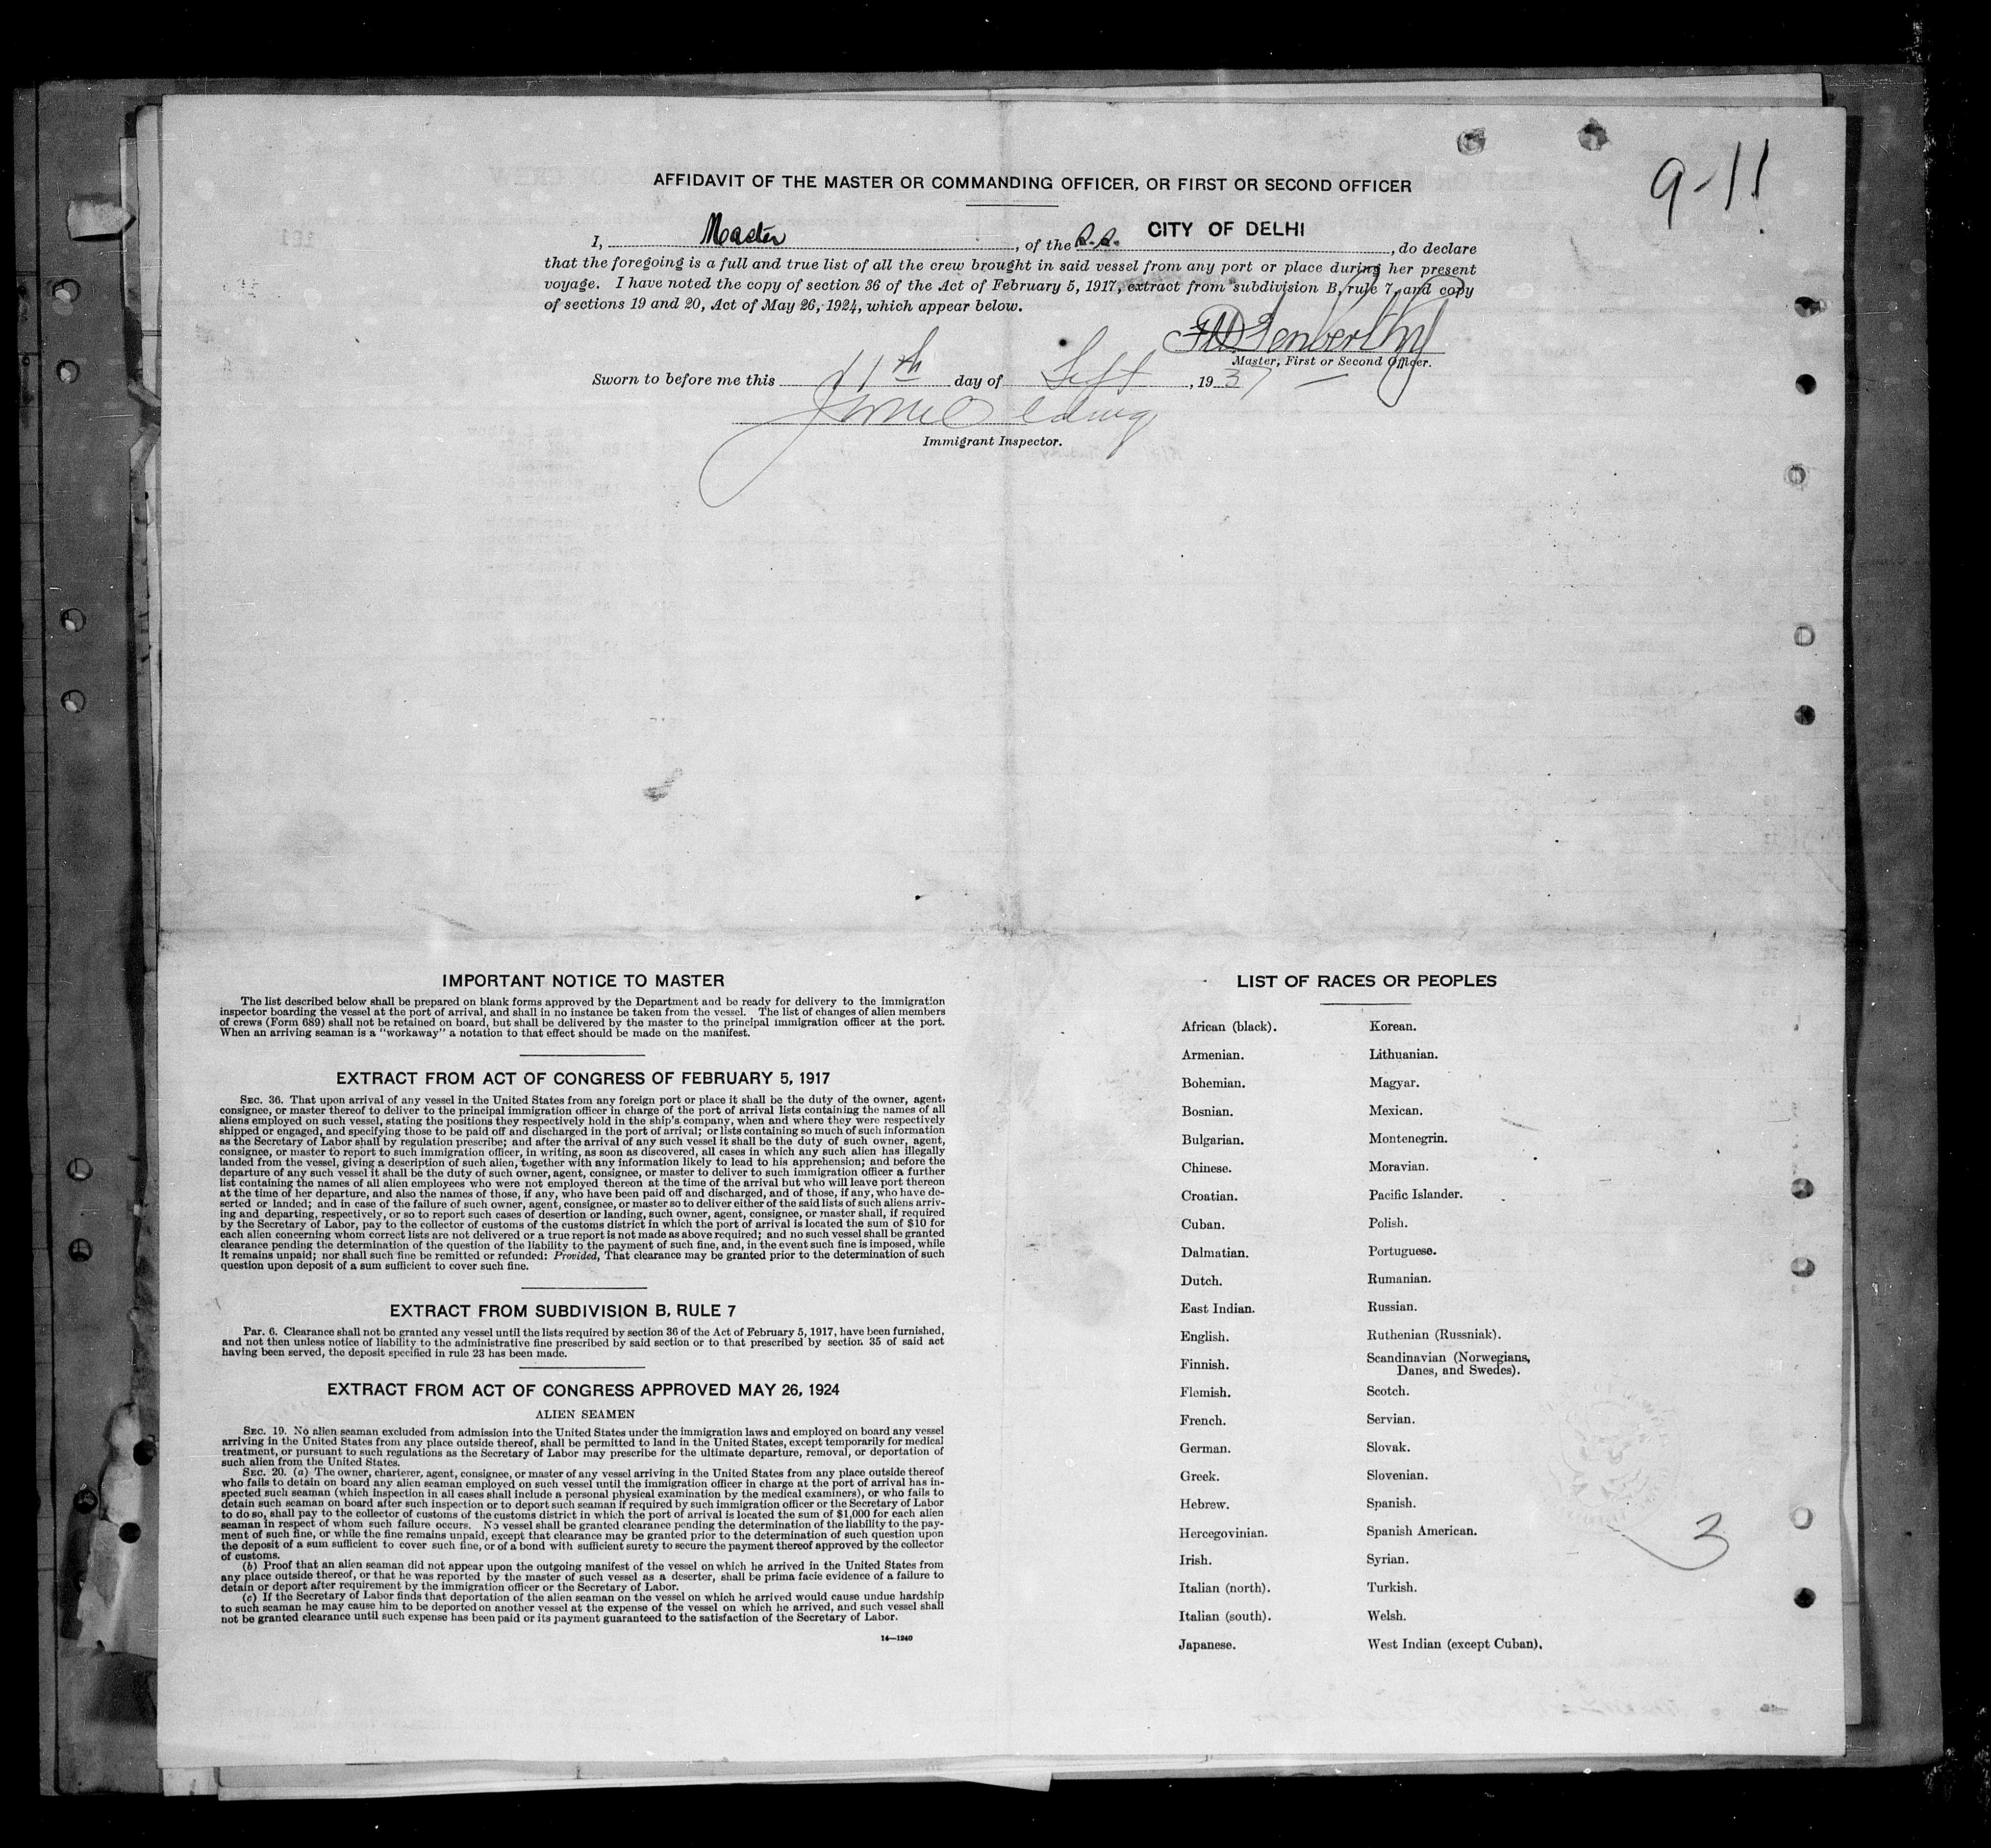 9-11
AFFIDAVIT OF THE MASTER OR COMMANDING OFFICER, OR FIRST OR SECOND OFFICER
I, Master, of the S.S. CITY OF DELHI, do declare
that the foregoing is a full and true list of all the crew brought in said vessel from any port or place during her present
voyage. I have noted the copy of section 36 of the Act of February 5, 1917, extract from subdivision B, rule 7, and copy
of sections 19 and 20, Act of May 26, 1924, which appear below.
Penberthy
Master, First or Second Officer.
Sworn to before me this 11th day of Sept, 1937
Immigrant Inspector.
IMPORTANT NOTICE TO MASTER
The list described below shall be prepared on blank forms approved by the Department and be ready for delivery to the immigration
inspector boarding the vessel at the port of arrival, and shall in no instance be taken from the vessel. The list of changes of alien members
of crews (Form 689) shall not be retained on board, but shall be delivered by the master to the principal immigration officer at the port.
When an arriving seaman is a "workaway" a notation to that effect should be made on the manifest.
EXTRACT FROM ACT OF CONGRESS OF FEBRUARY 5, 1917
SEC. 36. That upon arrival of any vessel in the United States from any foreign port or place it shall be the duty of the owner, agent,
consignee, or master thereof to deliver to the principal immigration officer in charge of the port of arrival lists containing the names of all
aliens employed on such vessel, stating the positions they respectively hold in the ship's company, when and where they were respectively
shipped or engaged, and specifying those to be paid off and discharged in the port of arrival; or lists containing so much of such information
as the Secretary of Labor shall by regulation prescribe; and after the arrival of any such vessel it shall be the duty of such owner, agent,
consignee, or master to report to such immigration officer, in writing, as soon as discovered, all cases in which any such alien has illegally
landed from the vessel, giving a description of such alien, together with any information likely to lead to his apprehension; and before the
departure of any such vessel it shall be the duty of such owner, agent, consignee, or master to deliver to such immigration officer a further
list containing the names of all alien employees who were not employed thereon at the time of the arrival but who will leave port thereon
at the time of her departure, and also the names of those, if any, who have been paid off and discharged, and of those, if any, who have de-
serted or landed; and in case of the failure of such owner, agent, consignee, or master so to deliver either of the said lists of such aliens arriv-
ing and departing, respectively, or so to report such cases of desertion or landing, such owner, agent, consignee, or master shall, if required
by the Secretary of Labor, pay to the collector of customs of the customs district in which the port of arrival is located the sum of $10 for
each alien concerning whom correct lists are not delivered or a true report is not made as above required; and no such vessel shall be granted
clearance pending the determination of the question of the liability to the payment of such fine, and, in the event such fine is imposed, while
it remains unpaid; nor shall such fine be remitted or refunded: Provided, That clearance may be granted prior to the determination of such
question upon deposit of a sum sufficient to cover such fine.
EXTRACT FROM SUBDIVISION B, RULE 7
Par. 6. Clearance shall not be granted any vessel until the lists required by section 36 of the Act of February 5, 1917, have been furnished,
and not then unless notice of liability to the administrative fine prescribed by said section or to that prescribed by section 35 of said act
having been served, the deposit specified in rule 23 has been made.
EXTRACT FROM ACT OF CONGRESS APPROVED MAY 26, 1924
ALIEN SEAMEN
SEC. 19. No alien seaman excluded from admission into the United States under the immigration laws and employed on board any vessel
arriving in the United States from any place outside thereof, shall be permitted to land in the United States, except temporarily for medical
treatment, or pursuant to such regulations as the Secretary of Labor may prescribe for the ultimate departure, removal, or deportation of
such alien from the United States.
SEC. 20. (a) The owner, charterer, agent, consignee, or master of any vessel arriving in the United States from any place outside thereof
who fails to detain on board any alien seaman employed on such vessel until the immigration officer in charge at the port of arrival has in-
spected such seaman (which inspection in all cases shall include a personal physical examination by the medical examiners), or who fails to
detain such seaman on board after such inspection or to deport such seaman if required by such immigration officer or the Secretary of Labor
to do so, shall pay to the collector of customs of the customs district in which the port of arrival is located the sum of $1,000 for each alien
seaman in respect of whom such failure occurs. No vessel shall be granted clearance pending the determination of the liability to the pay-
ment of such fine, or while the fine remains unpaid, except that clearance may be granted prior to the determination of such question upon
the deposit of a sum sufficient to cover such fine, or of a bond with sufficient surety to secure the payment thereof approved by the collector
of customs.
(b) Proof that an alien seaman did not appear upon the outgoing manifest of the vessel on which he arrived in the United States from
any place outside thereof, or that he was reported by the master of such vessel as a deserter, shall be prima facie evidence of a failure to
detain or deport after requirement by the immigration officer or the Secretary of Labor.
(c) If the Secretary of Labor finds that deportation of the alien seaman on the vessel on which he arrived would cause undue hardship
to such seaman he may cause him to be deported on another vessel at the expense of the vessel on which he arrived, and such vessel shall
not be granted clearance until such expense has been paid or its payment guaranteed to the satisfaction of the Secretary of Labor.
14—1240
LIST OF RACES OR PEOPLES
African (black).
Armenian.
Bohemian.
Bosnian.
Bulgarian.
Chinese.
Croatian.
Cuban.
Dalmatian.
Dutch.
East Indian.
English.
Finnish.
Flemish.
French.
German.
Greek.
Hebrew.
Hercegovinian.
Irish.
Italian (north).
Italian (south).
Japanese.
Korean.
Lithuanian.
Magyar.
Mexican.
Montenegrin.
Moravian.
Pacific Islander.
Polish.
Portuguese.
Rumanian.
Russian.
Ruthenian (Russniak).
Scandinavian (Norwegians,
Danes, and Swedes).
Scotch.
Servian.
Slovak.
Slovenian.
Spanish.
Spanish American.
Syrian.
Turkish.
Welsh.
West Indian (except Cuban).
3